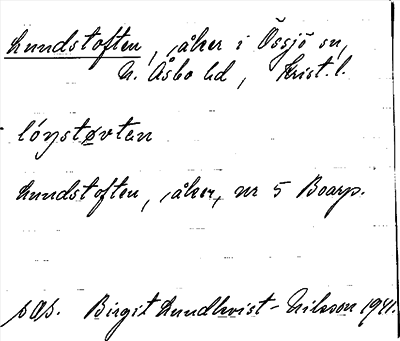 Lundstoften, åker i Össjö sn,
N. Åsbo hd, Krist. l.
lóŋstøvten
Lundstoften, åker, nr 5 Boarp.
Birgit Lundkvist-Nilsson 1941.